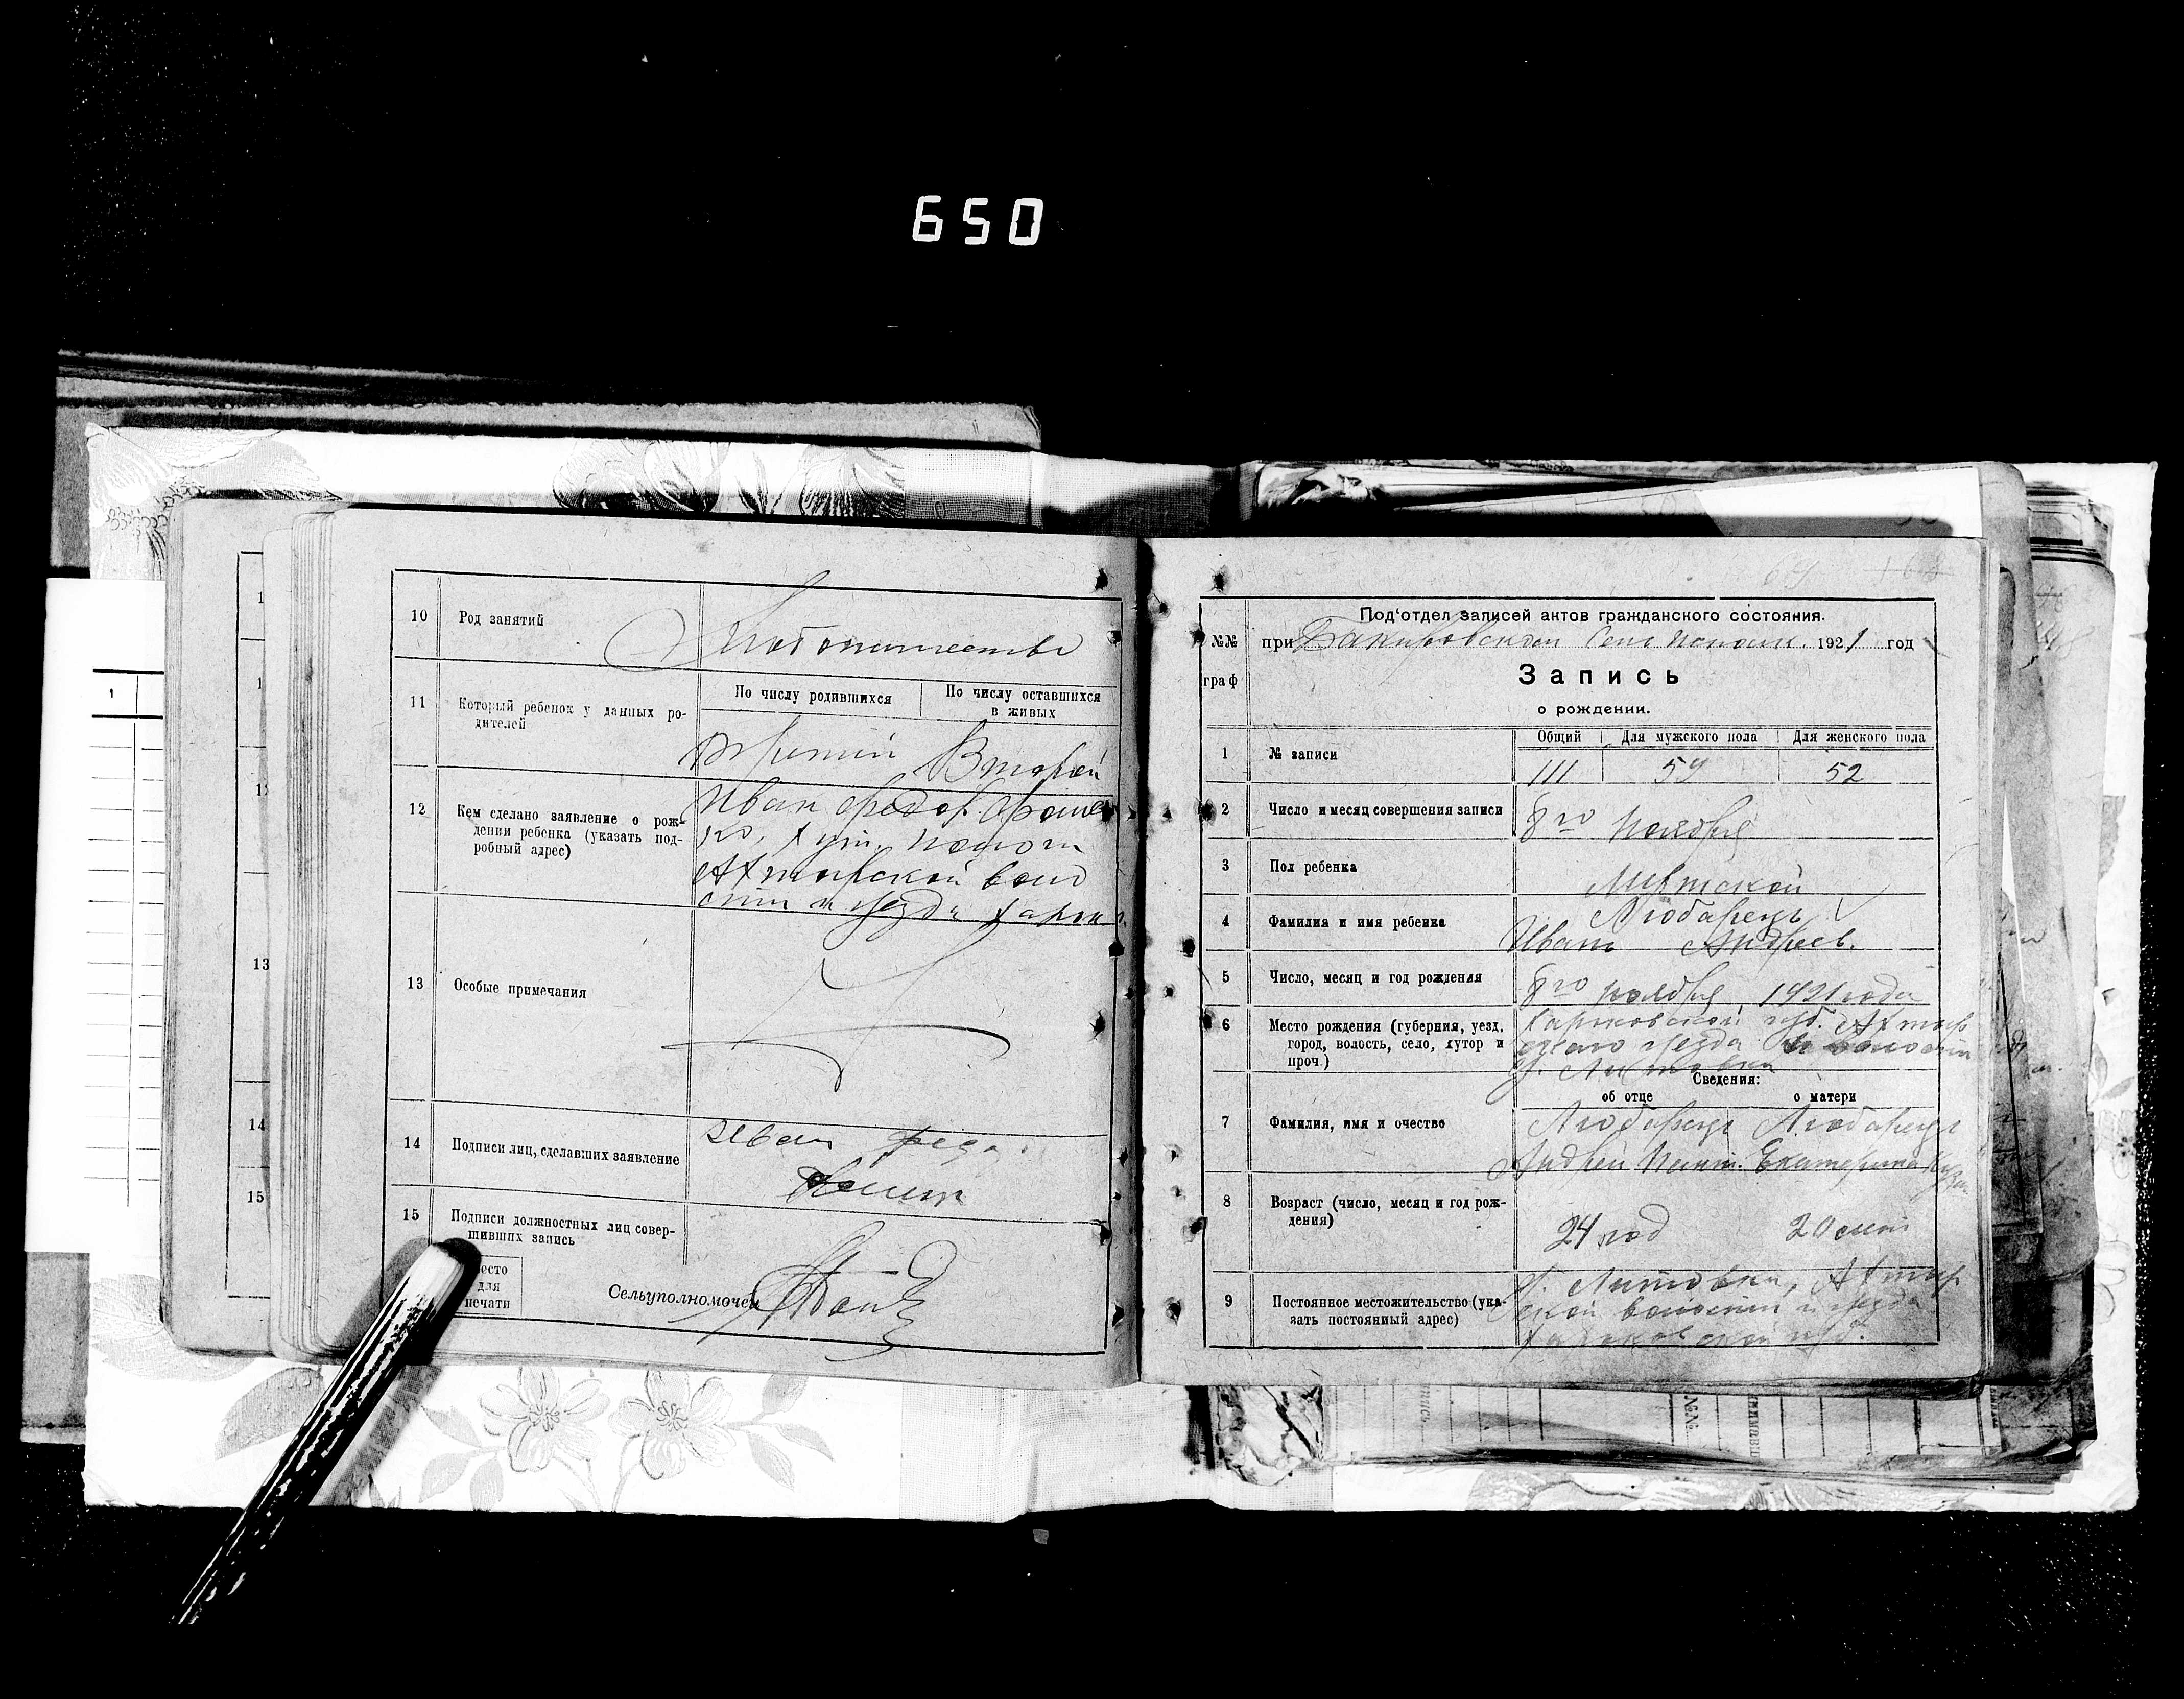 650
10 Род занятий
Хлебопашество
11 Который ребенок у данных ро-
дителей
По числу родившихся По числу оставшихся
в живых
Третий Второй
12 Кем сделано заявление о рож-
дении ребенка (указать под-
робный адрес)
Иван Федор.
хут.
Ахтырской воло
сти и уезда Харьк.
13 Особые примечания
14 Подписи лиц, сделавших заявление
Иван
15 Подписи должностных лиц совер-
шивших запись
место
для
печати
Сельуполномочен
1
13
14
15
69
Под'отдел записей актов гражданского состояния.
№№ при Бакировском 1921 год
граф
Запись
о рождении.
1 № записи
Общий Для мужского пола Для женского пола
111 59 52
2 Число и месяц совершения записи
8го ноября
3 Пол ребенка
Мужской
4 Фамилия и имя ребенка
Любарець
Иванъ Андреев.
5 Число, месяц и год рождения
8го ноября 1921 года
6 Место рождения (губерния, уезд,
город, волость, село, хутор и
проч.)
Харьковской губ. Ахтыр
ского уезда и волости
х. Литовка
Сведения:
об отце о матери
7 Фамилия, имя и очество
Любарець Любарець
Андрей Екатерина
8 Возраст (число, месяц и год рож-
дения)
24 год 20 лет
9 Постоянное местожительство (ука-
зать постоянный адрес)
х. Литовка, Ахтыр
ской волости и уезда
Харьковской губ.
№№